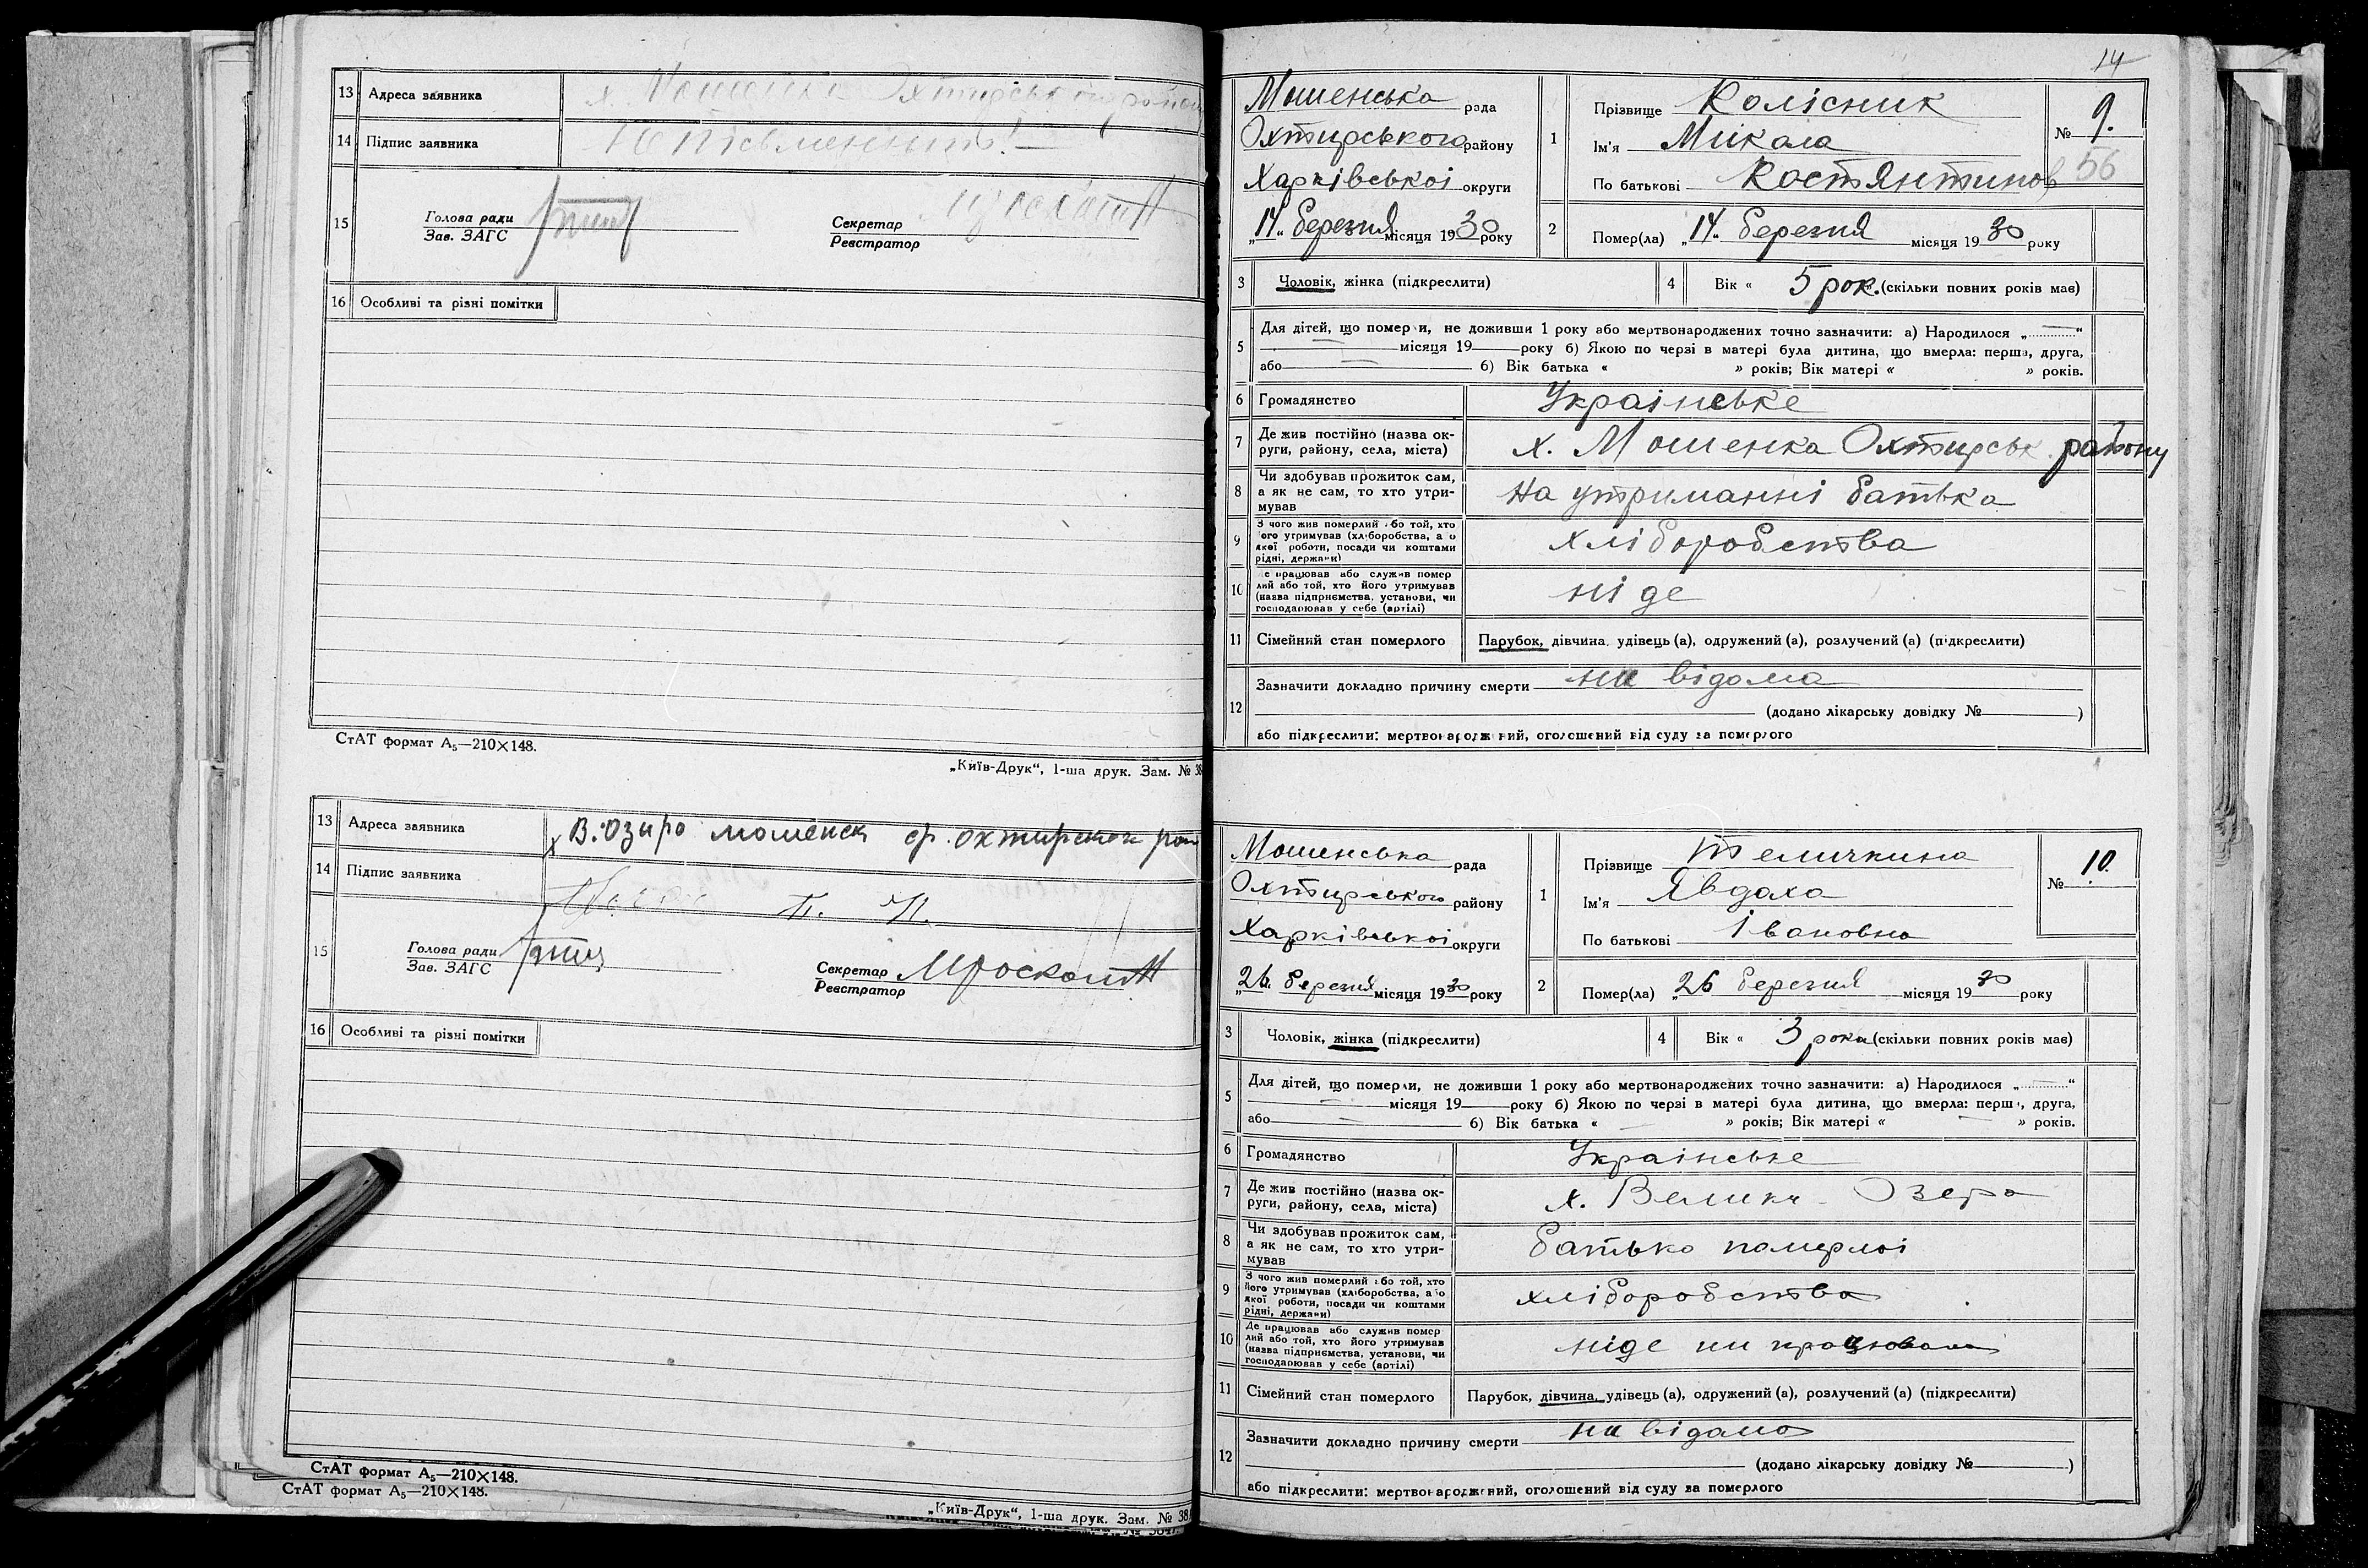 13 Адреса заявника х. Охтирськ району
14 Підпис заявника
15 Голова ради
Зав. ЗАГС
Секретар
Реєстратор
16 Особливі та різні помітки
СтАТ формат А₅—210×148.
„Київ-Друк“, 1-ша друк. Зам. № 38
13 Адреса заявника х В. Озиро моменск ср. охтирског рай
14 Підпис заявника П. И.
15 Голова ради
Зав. ЗАГС
Секретар
Реєстратор
16 Особливі та різні помітки
СтАТ формат А₅—210×148.
СтАТ формат А₅—210×148.
„Київ-Друк“, 1-ша друк. Зам. № 38
14
Мошенська рада
Охтирського району
Харківськоі округи
„14“ березня місяця 1930 року
1 Прізвище Колісник
Ім'я Мікала
По батькові Костянтинов
№ 9.
56
2 Помер(ла) „14“ березня місяця 1930 року
3 Чоловік, жінка (підкреслити)
4 Вік « 5 рок. (скільки повних років має)
5 Для дітей, що померли, не доживши 1 року або мертвонароджених точно зазначити: а) Народилося „ “
місяця 19 року б) Якою по черзі в матері була дитина, що вмерла: перша, друга,
або б) Вік батька « » років; Вік матері « » років.
6 Громадянство Украінське
7 Де жив постійно (назва ок-
руги, району, села, міста) х. Мошенка Охтирськ. району
8 Чи здобував прожиток сам,
а як не сам, то хто утри-
мував На утриманні батька
9 З чого жив померлий або той, хто
його утримував (хліборобства, або
якої роботи, посади чи коштами
рідні, держави) хліборобства
10 Де працював або служив помер
лий або той, хто його утримував
(назва підприємства, установи, чи
господарював у себе (артілі) ні де
11 Сімейний стан померлого Парубок, дівчина, удівець (а), одружений (а), розлучений (а) (підкреслити)
12 Зазначити докладно причину смерти ни відома
(додано лікарську довідку № )
або підкреслити: мертвонароджений, оголошений від суду за померлого
Мошенська рада
Охтирського району
Харківськоі округи
„26“ березня місяця 1930 року
1 Прізвище Теличкина
Ім'я Явдаха
По батькові Івановна
№ 10.
2 Помер(ла) „26 березня місяця 1930 року
3 Чоловік, жінка (підкреслити)
4 Вік « 3 роки (скільки повних років має)
5 Для дітей, що померли, не доживши 1 року або мертвонароджених точно зазначити: а) Народилося „ “
місяця 19 року б) Якою по черзі в матері була дитина, що вмерла: перша, друга,
або б) Вік батька « » років; Вік матері « » років.
6 Громадянство Украінське
7 Де жив постійно (назва ок-
руги, району, села, міста) х. Велики Озера
8 Чи здобував прожиток сам,
а як не сам, то хто утри-
мував батько памерлоі
9 З чого жив померлий або той, хто
його утримував (хліборобства, або
якої роботи, посади чи коштами
рідні, держави) хліборобства
10 Де працював або служив помер
лий або той, хто його утримував
(назва підприємства, установи, чи
господарював у себе (артілі) ніде ни працювала
11 Сімейний стан померлого Парубок, дівчина, удівець (а), одружений (а), розлучений (а) (підкреслити)
12 Зазначити докладно причину смерти ни відамо
(додано лікарську довідку № )
або підкреслити: мертвонароджений, оголошений від суду за померлого